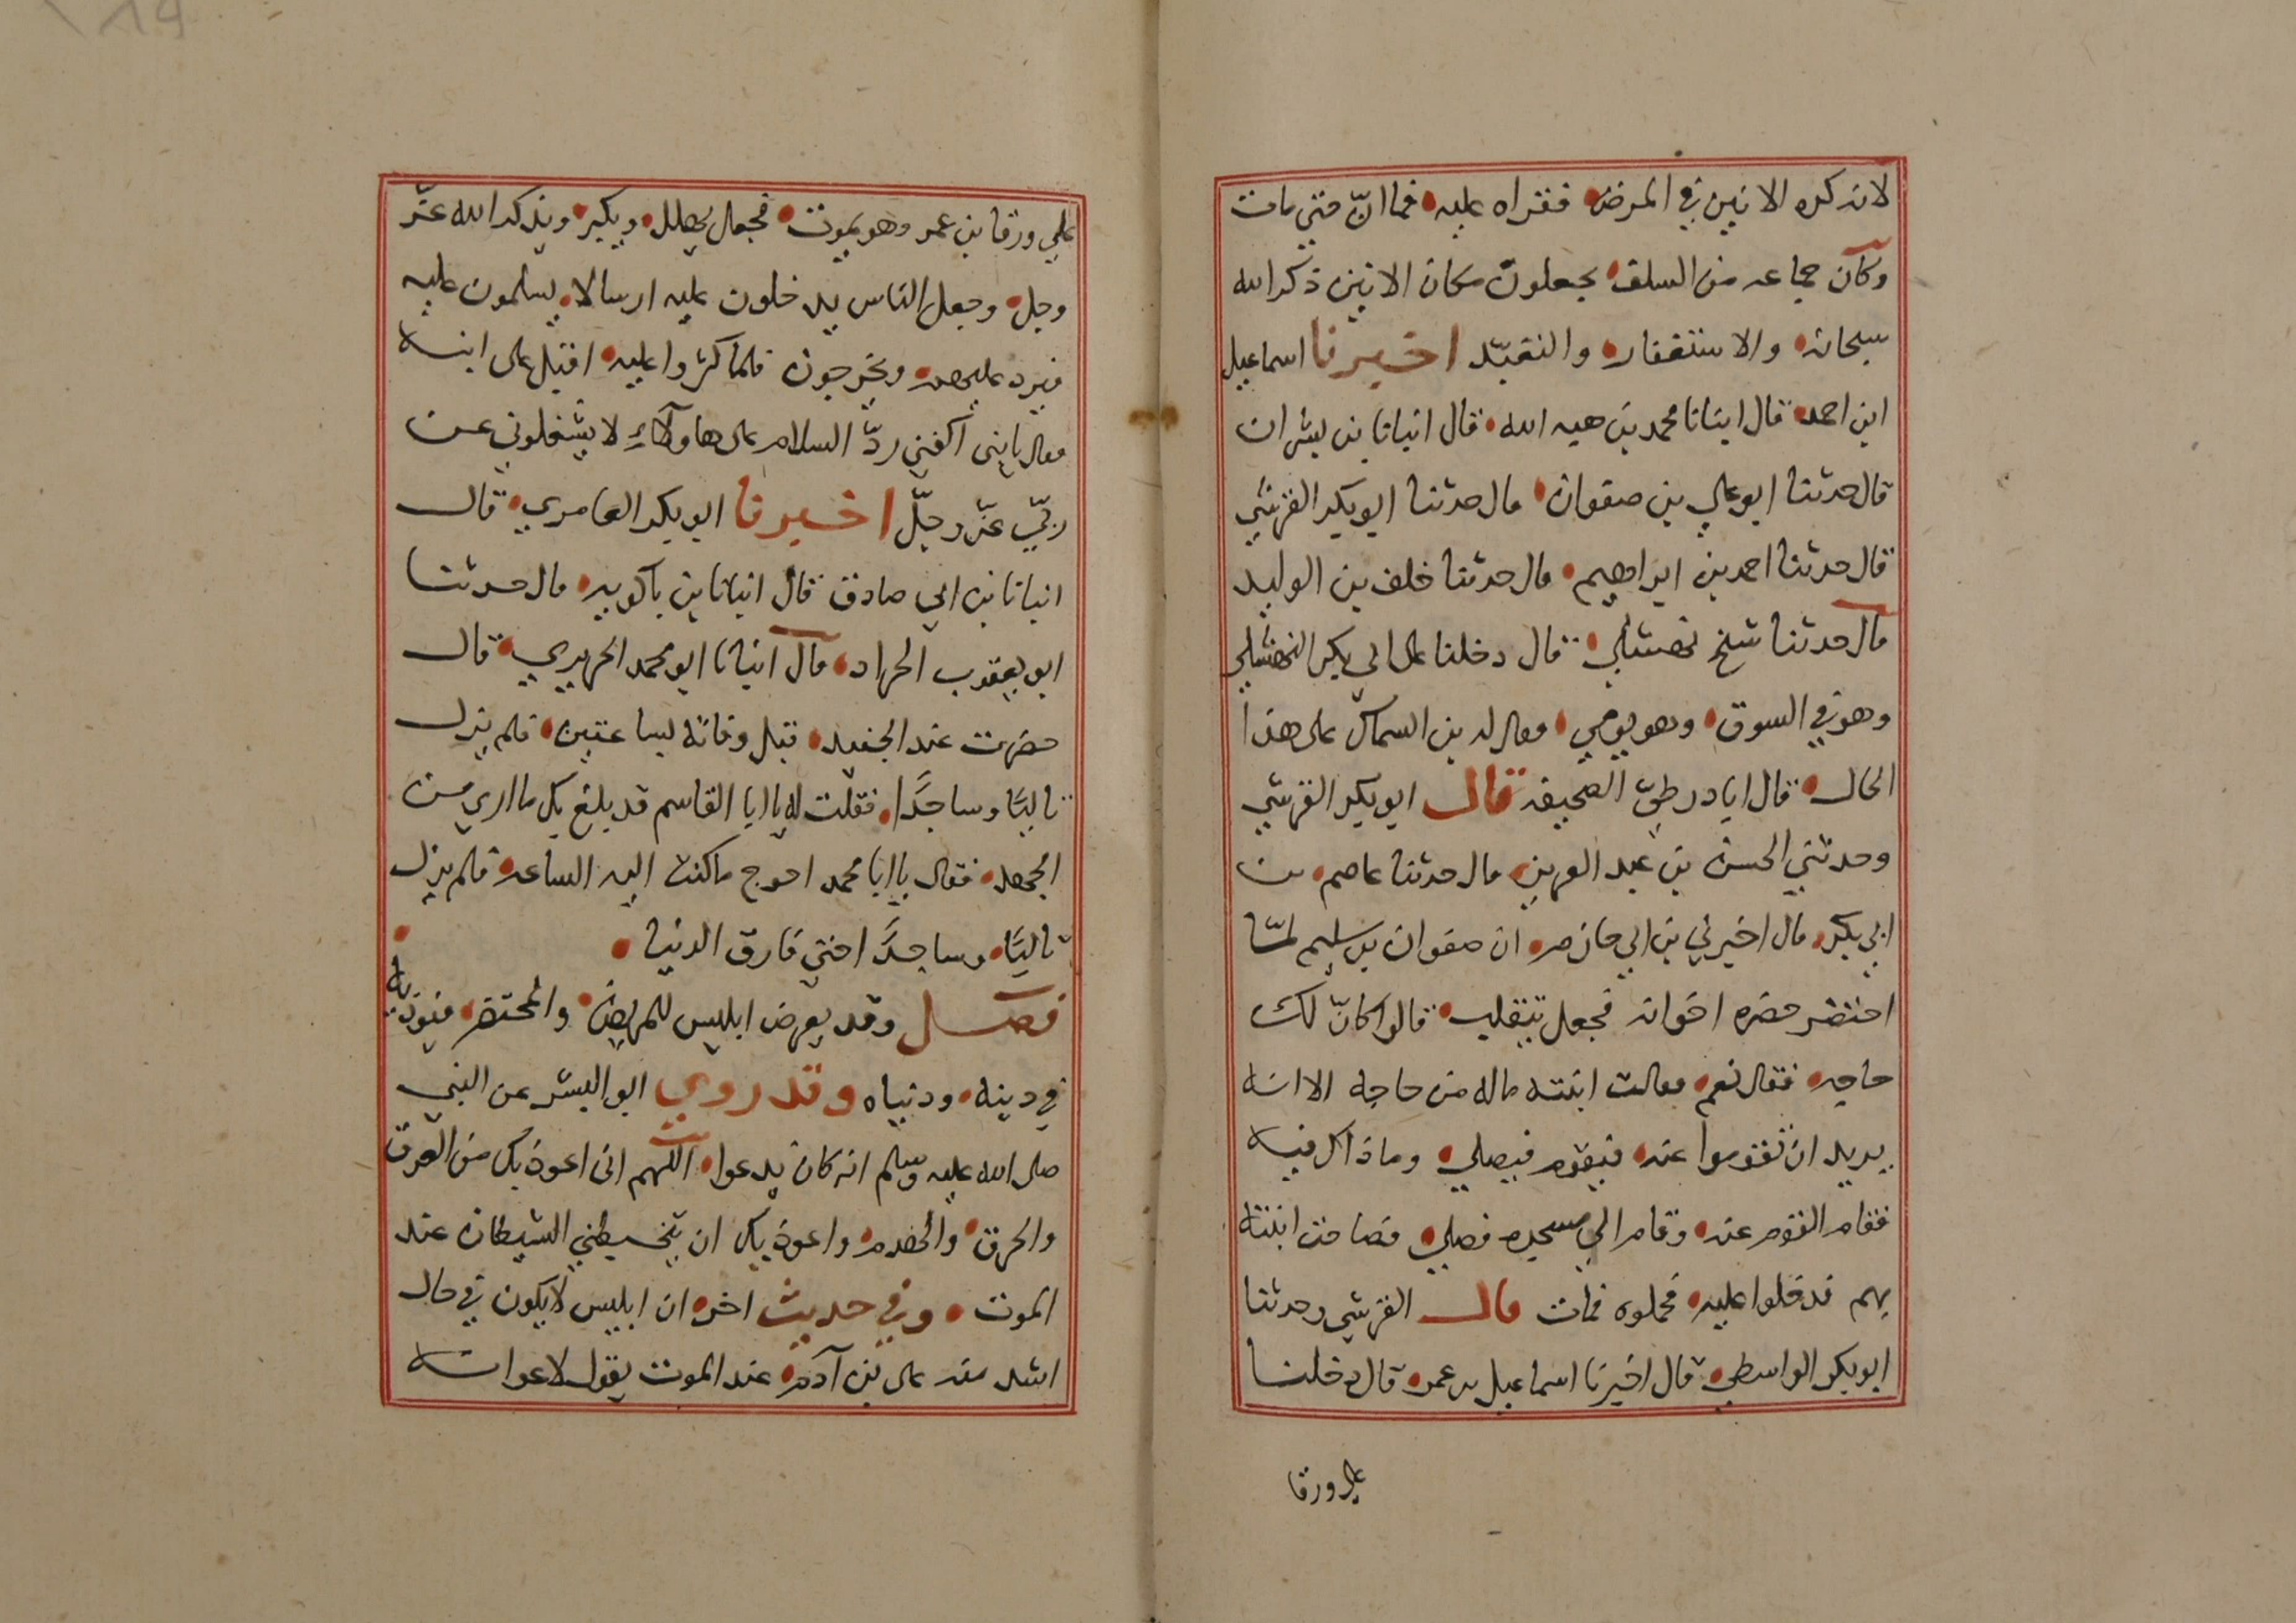 لانه كره الانين في المرض فقراه عليه فما انّ حتي مات
وكان جماعه من السلف يجعلون مكان الانين ذكر الله
سبحانه والاستغفار والتعبّد اخبرنا اسماعيل
ابن احمد قال انبانا محمد بن هبه الله قال انبانا بن بشران
قال حدثنا ابو علي بن صفوان قال حدثنا ابو بكر القرشي
قال حدثنا احمد بن ابراهيم قال حدثنا خلف بن الوليد
قال حدثنا شيخ نهشلي قال دخلنا على ابي بكر النهشلي
وهو في السوق وهو يومي فقال له بن السماك على هذا
الحال قال ابادر طيّ الصحيفه قال ابو بكر القرشي
وحدثني الحسن بن عبد العزيز قال حدثنا عاصم بن
ابي بكر قال اخبرني بن ابي حازم ان صفوان بن سليم لمّا
احتضر حضره اخوانه فجعل يتقلب قالوا كانّ لك
حاجه فقال نعم فقالت ابنته ماله من حاجه الا انه
يريد ان تقوموا عنه فيقوم فيصلي وما ذاك فيه
فقام القوم عنه وقام الي مسجده فصلي فصاحت ابنته
بهم فدخلوا عليه فحملوه فمات قال القرشي وحدثنا
ابو بكر الواسطي قال اخبرنا اسماعيل بن عمر قال دخلنا
علي ورقا
علي ورقا بن عمر وهو يموت فجعل يهلل ويكبر ويذكر الله عزّ
وجل وجعل الناس يدخلون عليه ارسالا يسلمون عليه
فيرد عليهم ويخرجون فلما كثروا عليه اقبل على ابنه
فقال يابنى اكفني ردّ السلام على هاولآءِ لا يشغلوني عن
ربّي عزّ وجلّ اخبرنا ابو بكر العامري قال
انبانا بن ابي صادق قال انبانا بن باكويه قال حدثنا
ابو يعقوب الخراد قال انبانا ابو محمد الجريري قال
حضرت عند الجنيد قبل وفاته بساعتين فلم يزل
تاليًا وساجدًا فقلت له يا ابا القاسم قد بلغ بك ما اري من
الجهد فقال يا ابا محمد احوج ما كنت اليه الساعه فلم يزل
تاليًا وساجدًا حتي فارق الدنيا
فصل وقد يعرض ابليس للمريض والمحتضر فيوذيه
في دينه ودنياه وقد روي ابو اليسر عن النبي
صلى الله عليه وسلم انه كان يدعوا اللهم انى اعوذ بك من الغرق
والحرق والهدم واعوذ بك ان يتخبطني الشيطان عند
الموت وفي حديث اخر ان ابليس لا يكون في حال
اشد منه على بن آدم عند الموت يقول لاعوانه